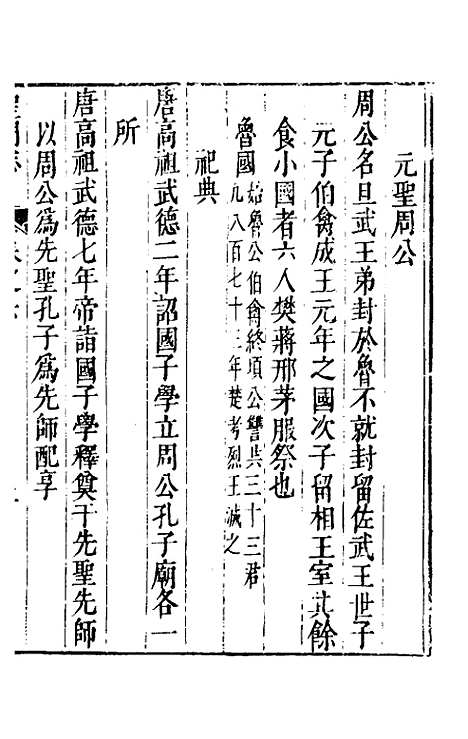 元聖周公
周公名旦武王弟封於魯不就封留佐武王世子
元子伯禽成王元年之國次子留相王室其餘
食小國者六人樊蔣邢茅服祭也
魯國始魯公伯禽終頃公讐共三十三君
凡八百七十三年楚考烈王滅之
祀典
唐高祖武德二年詔國子學立周公孔子廟各一
所
唐高祖武德七年帝詣國子學釋奠于先聖先師
以周公爲先聖孔子爲先師配享